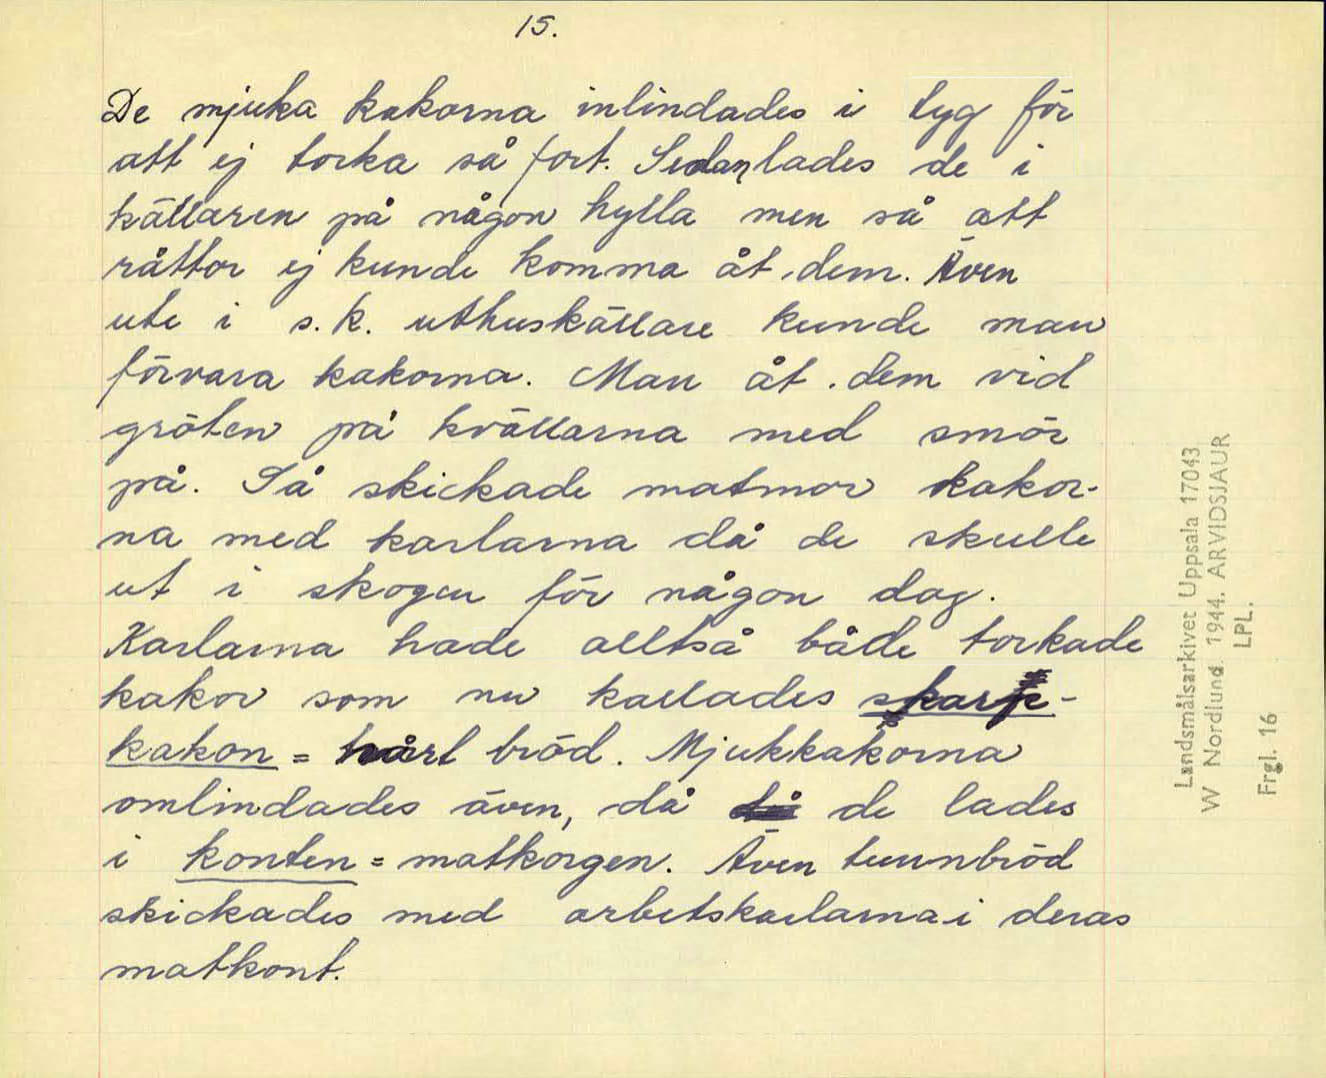 15.
De mjuka kakorna inlindades i tyg för
att ej torka så fort. Sedan lades de i
källaren på någon hylla men så att
råttor ej kunde komma åt dem. Även
ute i s.k. uthuskällare kunde man
förvara kakorna. Man åt dem vid
gröten på kvällarna med smör
på. Så skickade matmor kakor-
na med karlarna då de skulle
ut i skogen för någon dag.
Karlarna hade alltså både torkade
kakor som nu kallades skarp-
kakon = hårt bröd. Mjukkakorna
omlindades även, då de lades
i konten = matkorgen. Även tunnbröd
skickades med arbetskarlarna i deras
matkont.
Landsmålsarkivet Uppsala 17043
W Nordlund. 1944. ARVIDSJAUR
LPL.
Frgl. 16